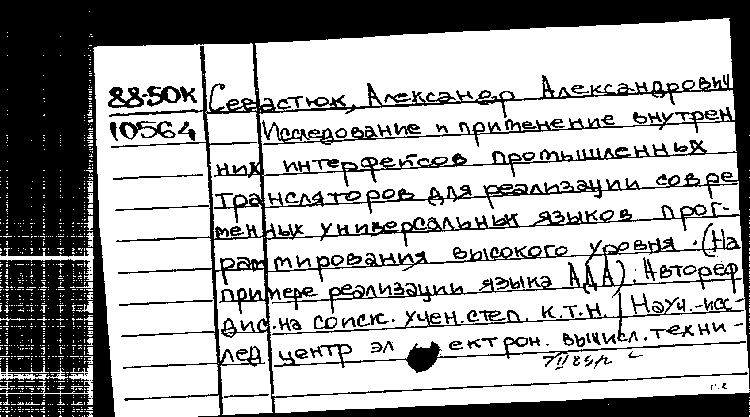 88-50К Севастюк, Александр Александрович
10564 Исследование и применение внутрен
них интерфейсов промышленных
трансляторов для реализации совре
менных универсальных языков прог-
раммирования высокого уровня. (На
примере реализации языка АДА): Автореф
дис.на соиск. учен.степ. к.т.н. / Науч.-исс-
лед центр электрон. вычисл.техни-